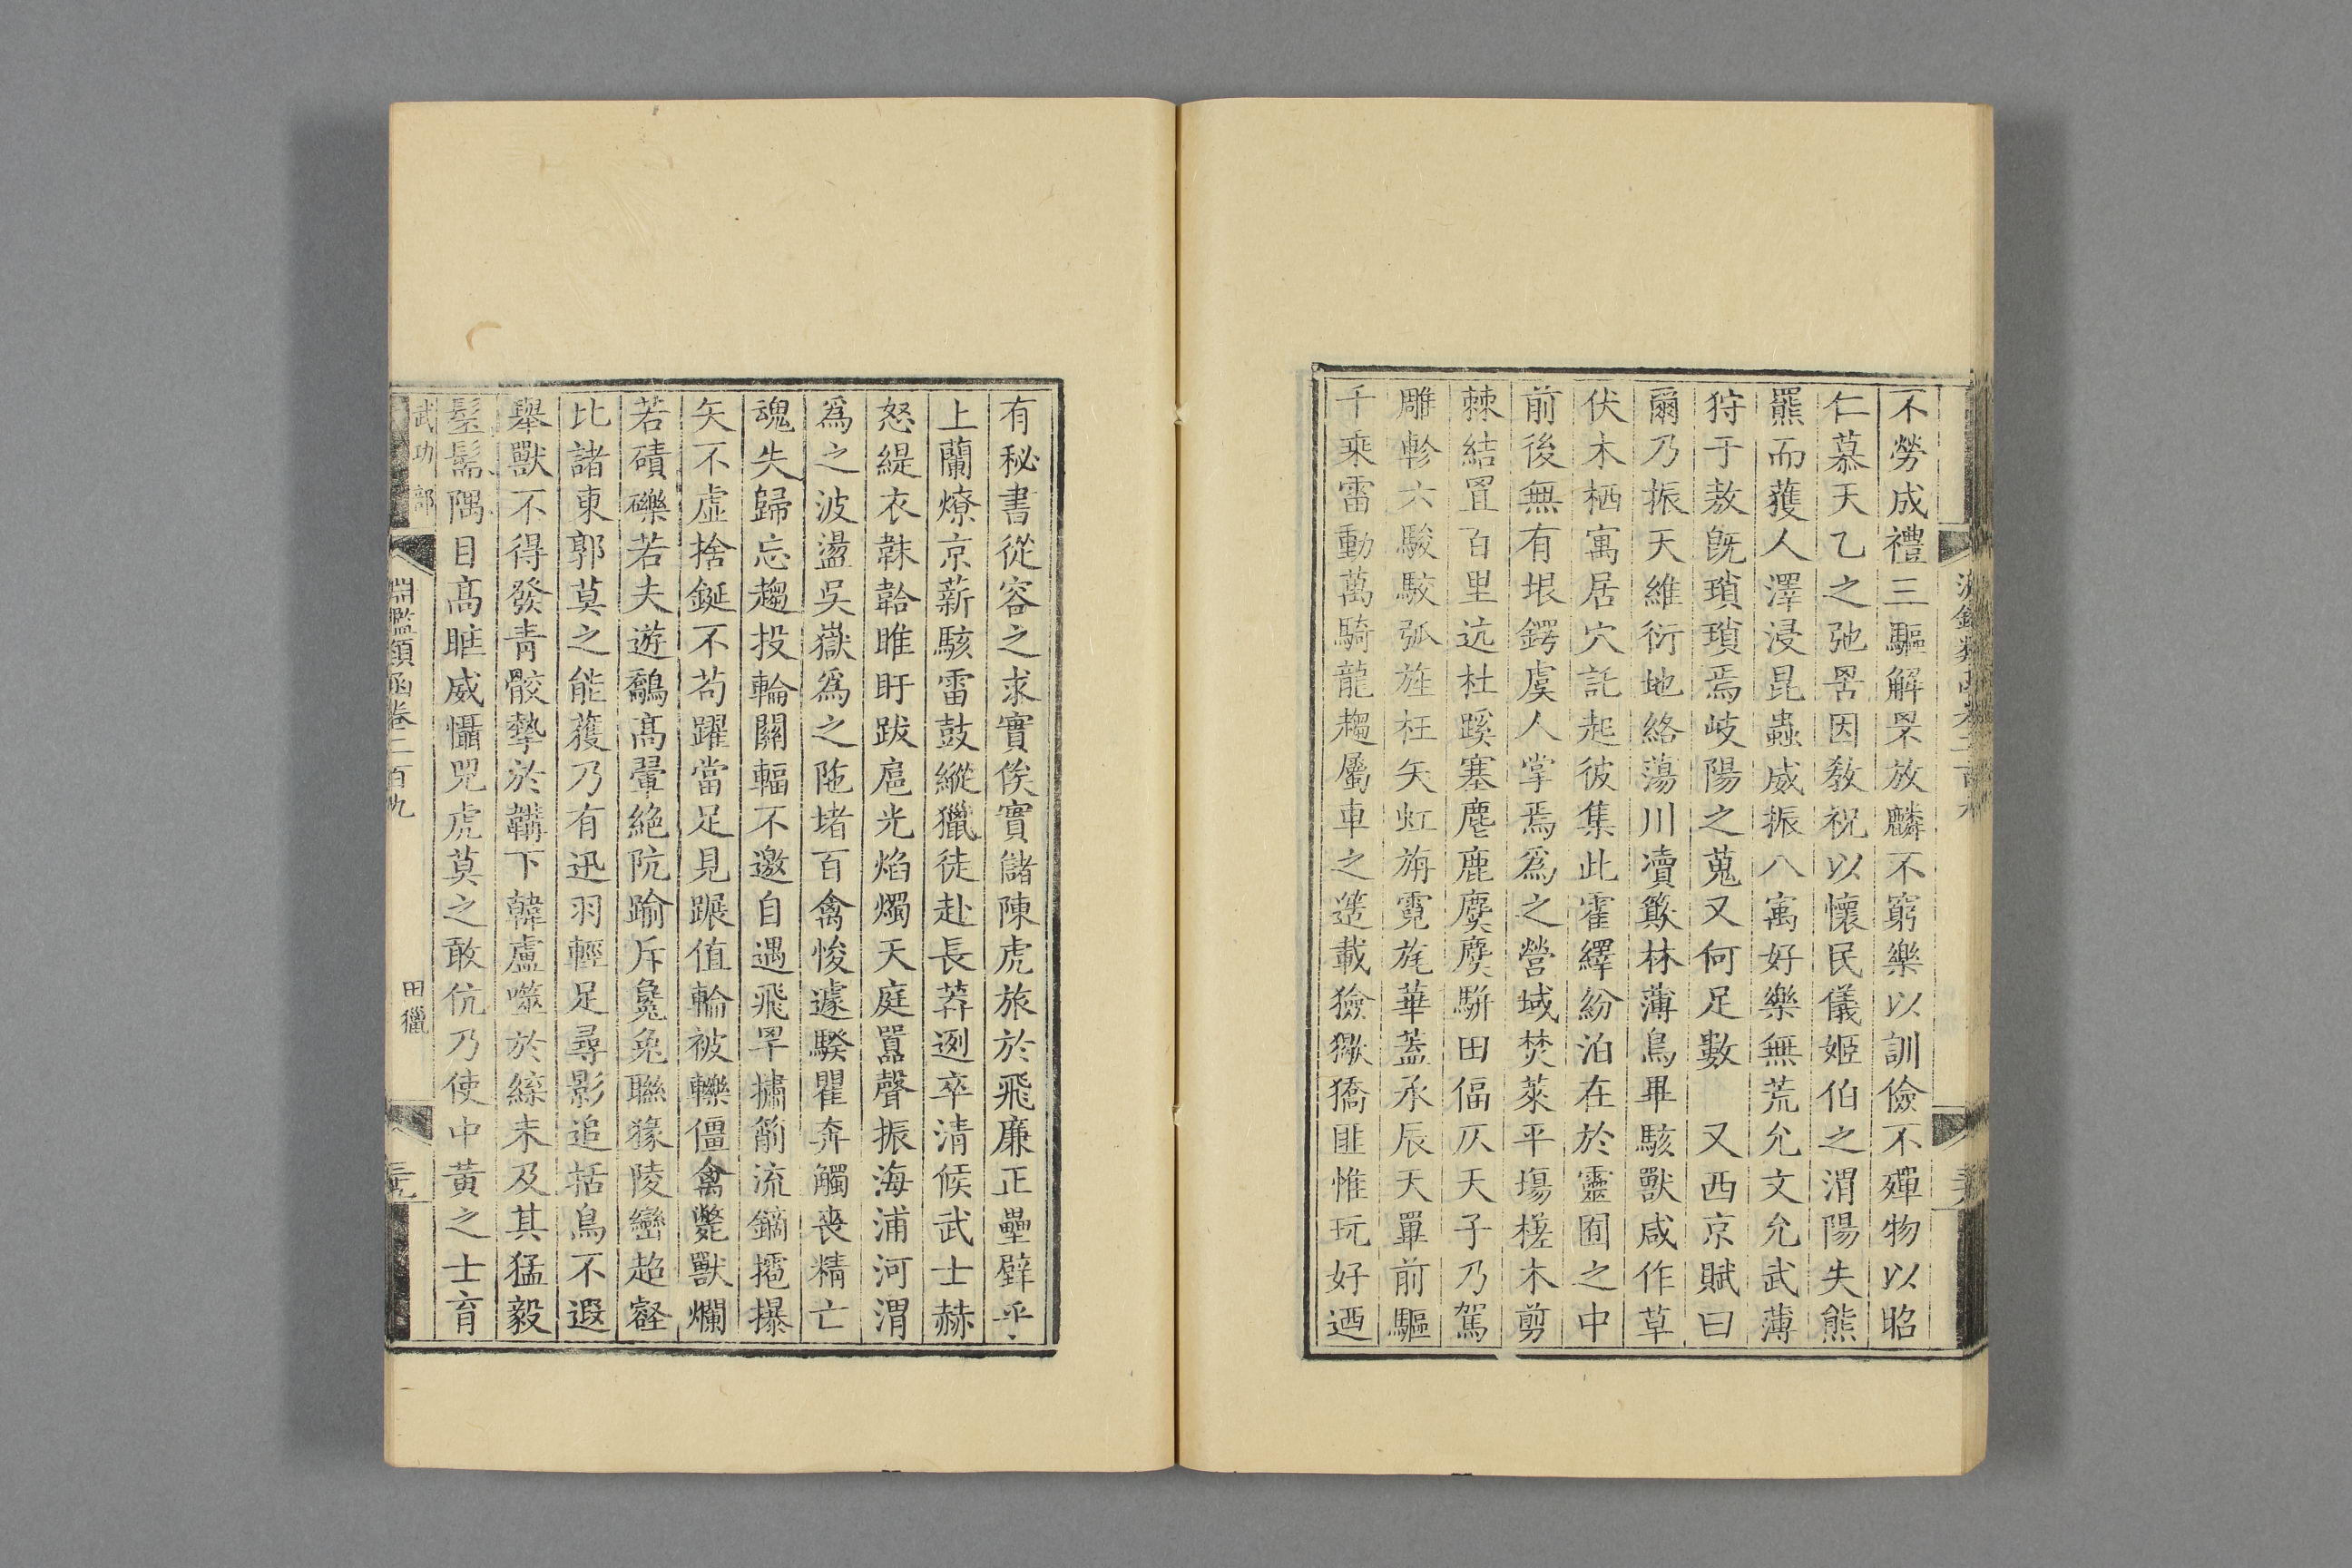 不勞成禮三驅解罘放麟不窮樂以訓儉不殫物以昭
仁慕天乙之弛罟因敎祝以懷民儀姬伯之渭陽失熊
羆而獲人澤浸昆蟲威振八寓好樂無荒允文允武薄
狩于敖旣瑣瑣焉岐陽之蒐又何足數 又西京賦曰
爾乃振天維衍地絡蕩川瀆簸林薄鳥畢駭獸咸作草
伏木栖寓居穴託起彼集此霍繹紛泊在於靈囿之中
前後無有垠鍔虞人掌焉爲之營域焚萊平塲槎木剪
棘結罝百里迒杜蹊塞麀鹿麌麌駢田偪仄天子乃駕
雕軫六駿駮弧旌枉矢虹旃霓旄華蓋承辰天畢前驅
千乘雷動萬騎龍趨屬車之簉載獫猲獢匪惟玩好迺
有秘書從容之求實俟實儲陳虎旅於飛廉正壘壁乎
上蘭燎京薪駭雷鼓縱獵徒赴長莽迾卒清候武士赫
怒緹衣韎韐睢盱跋扈光焰燭天庭囂聲振海浦河渭
爲之波盪吳嶽爲之陁堵百禽㥄遽騤瞿奔觸喪精亡
魂失歸忘趨投輪關輻不邀自遇飛罕潚箾流鏑㩧㩧
矢不虛捨鋋不苟躍當足見蹍値輪被轢僵禽斃獸爛
若磧礫若夫遊鷮高翬絶阬踰斥毚兔聯猭陵巒超壑
比諸東郭莫之能獲乃有迅羽輕足尋影追括鳥不遐
舉獸不得發青骹摯於韝下韓盧噬於緤末及其猛毅
髬髵隅目高眶威懾兕虎莫之敢伉乃使中黃之士育
武功部
淵鑑類函卷二百九
田獵